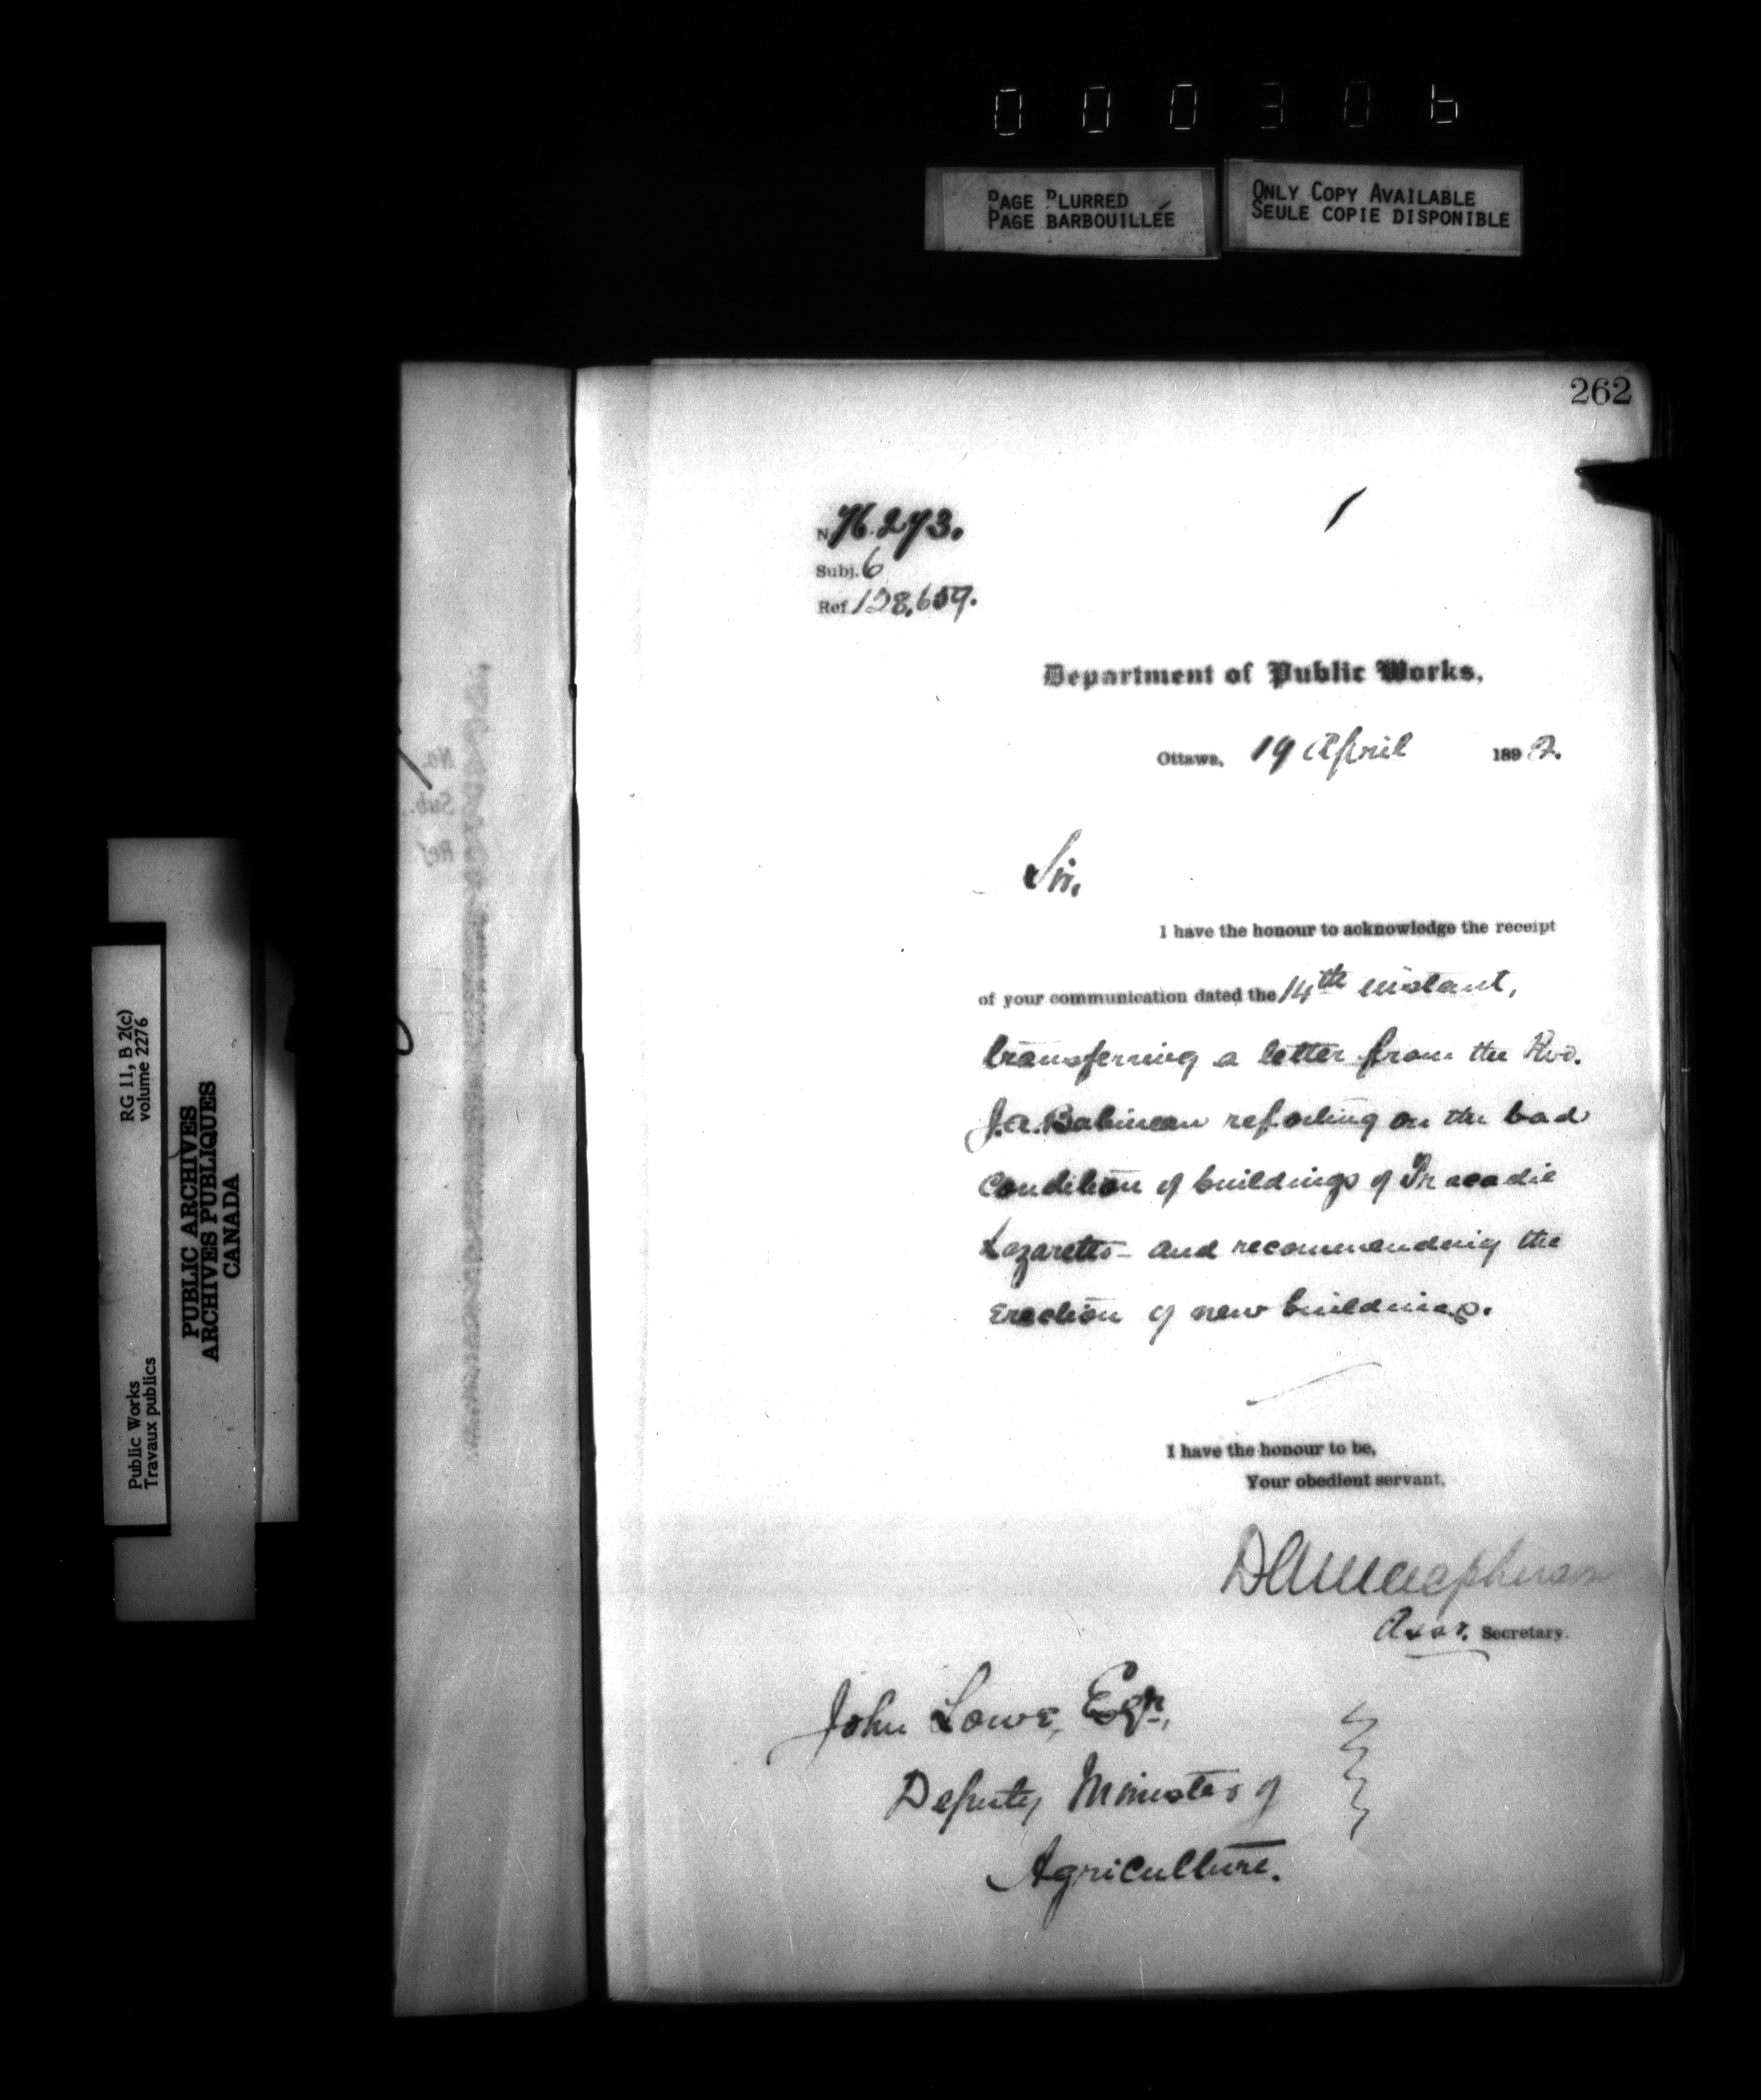 000306
PAGE BLURRED
PAGE BARBOUILLÉE
ONLY COPY AVAILABLE
SEULE COPIE DISPONIBLE
262
N 76.273.
Subj. 6
Ref. 128,659.
Department of Public Works,
Ottawa, 19 April 1892.
Sir,
I have the honour to acknowledge the receipt
of your communication dated the 14th instant,
transferring a letter from the Rvd.
J.A. Babineau reporting on the bad
condition of buildings of Tracadie
Lazaretto - and recommending the
erection of new buildings.
I have the honour to be,
Your obedient servant,
Assr. Secretary.
John Lowe, Esqr.,
Deputy Minister of
Agriculture.
No.
Sub.
Ref
RG 11, B 2(c)
volume 2276
Public Works
Travaux publics
PUBLIC ARCHIVES
ARCHIVES PUBLIQUES
CANADA